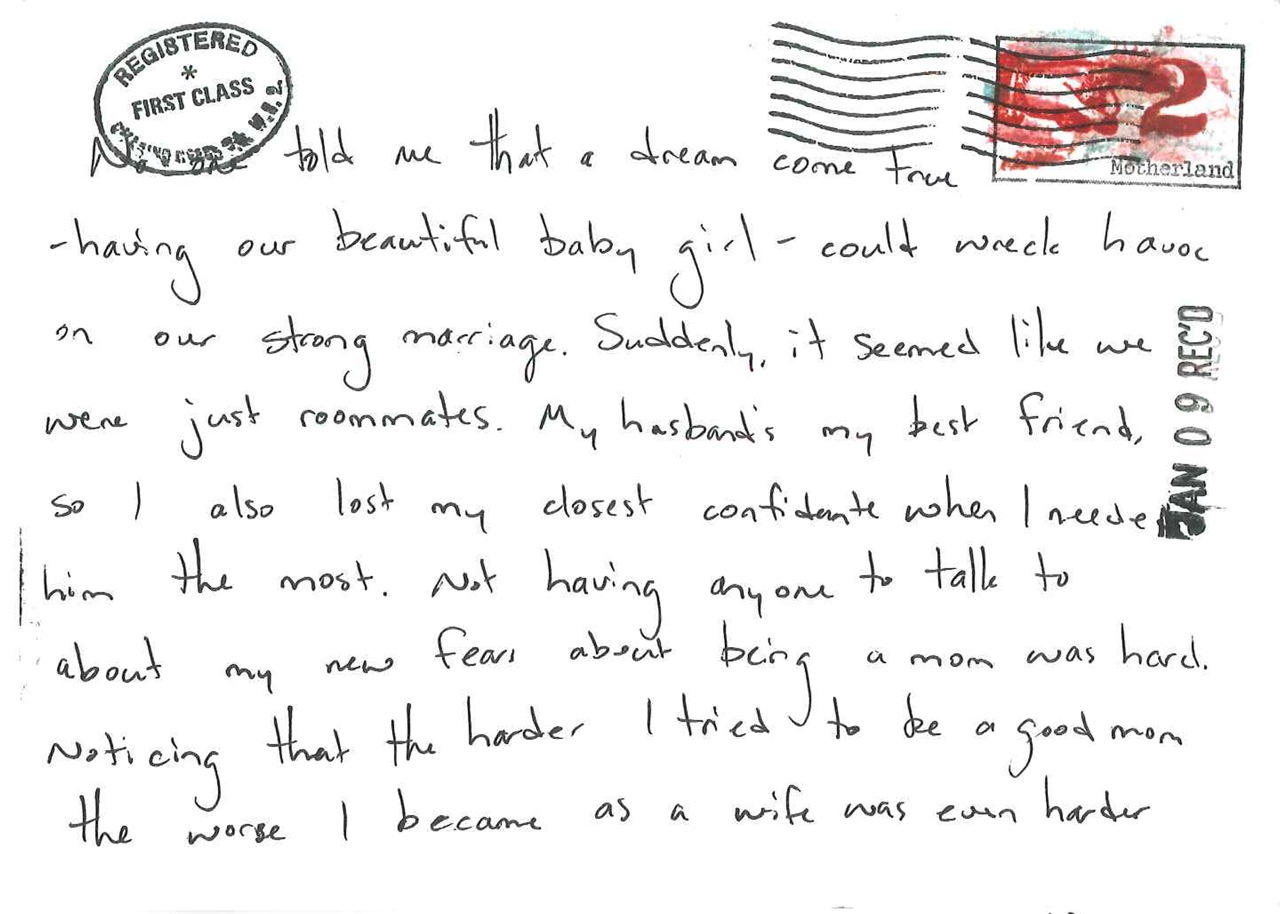 REGISTERED
*
FIRST CLASS
2
Motherland
No one told me that a dream come true
-having our beautiful baby girl - could wreck havoc
on our strong marriage. Suddenly, it seemed like we
were just roommates. My husband's my best friend,
so I also lost my closest confidante when I needed
him the most. Not having anyone to talk to
about my new fears about being a mom was hard.
Noticing that the harder I tried to be a good mom
the worse I became as a wife was even harder
JAN 09 REC'D